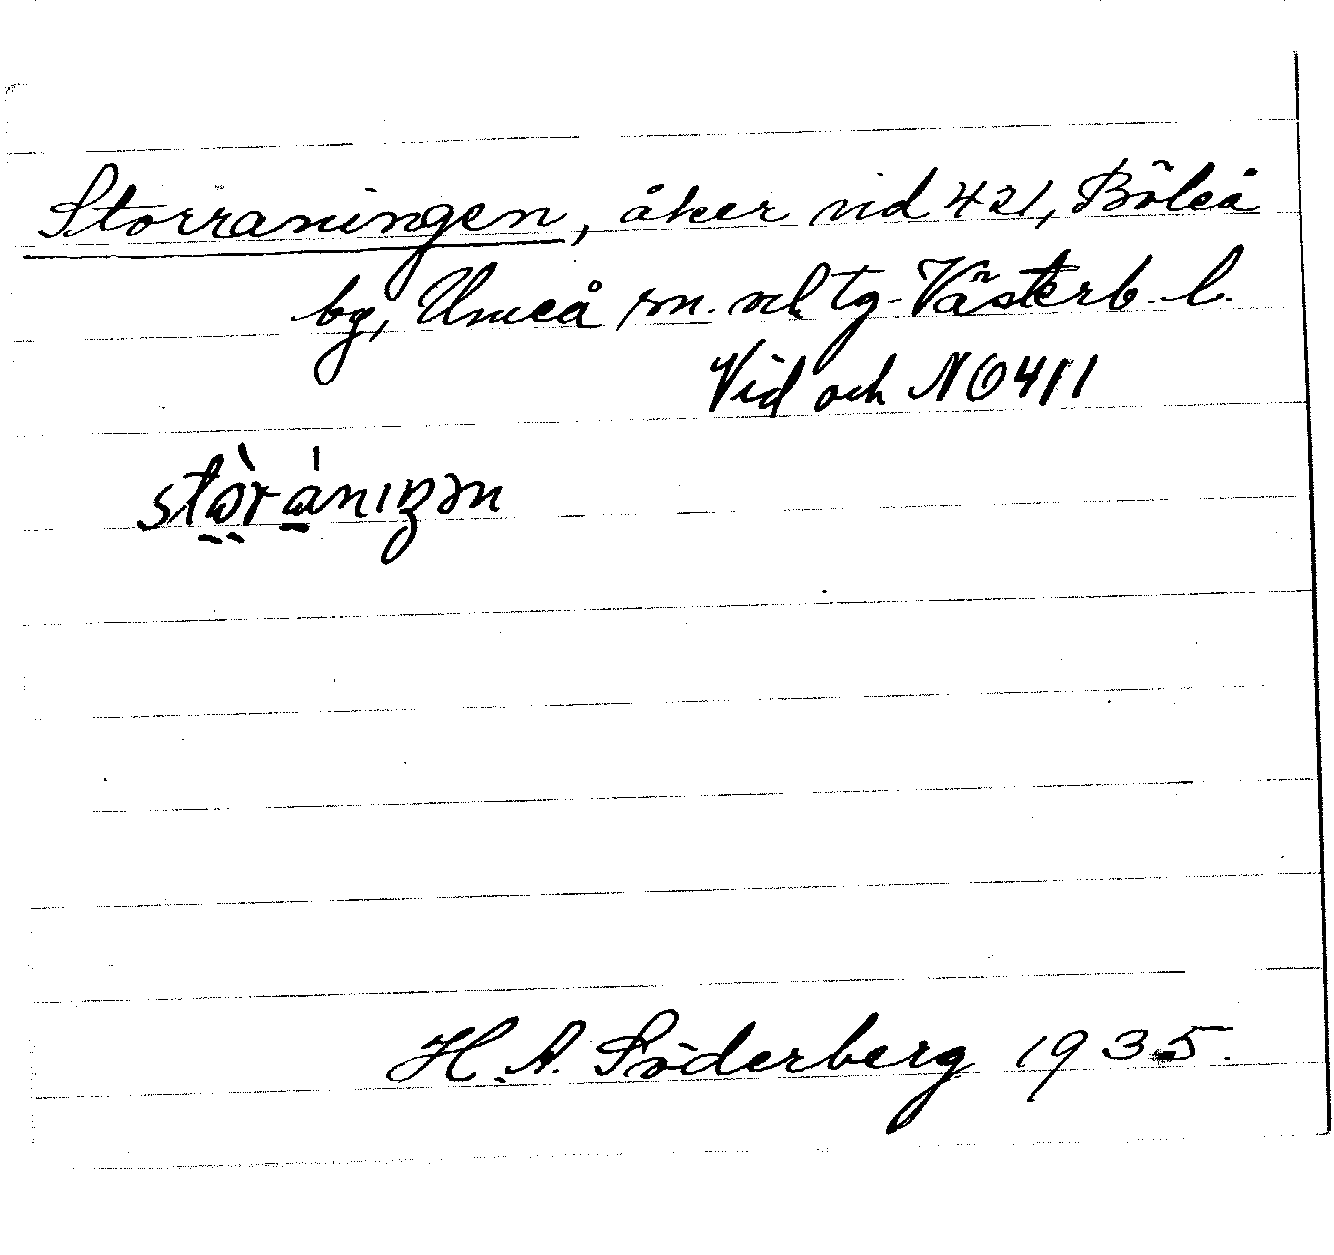 Storraningen, åker vid 421, Böleå
by, Umeå sn. och tg. Västerb. l.
Vid och NO 411
stòránıŋən
H. A. Söderberg 1935.